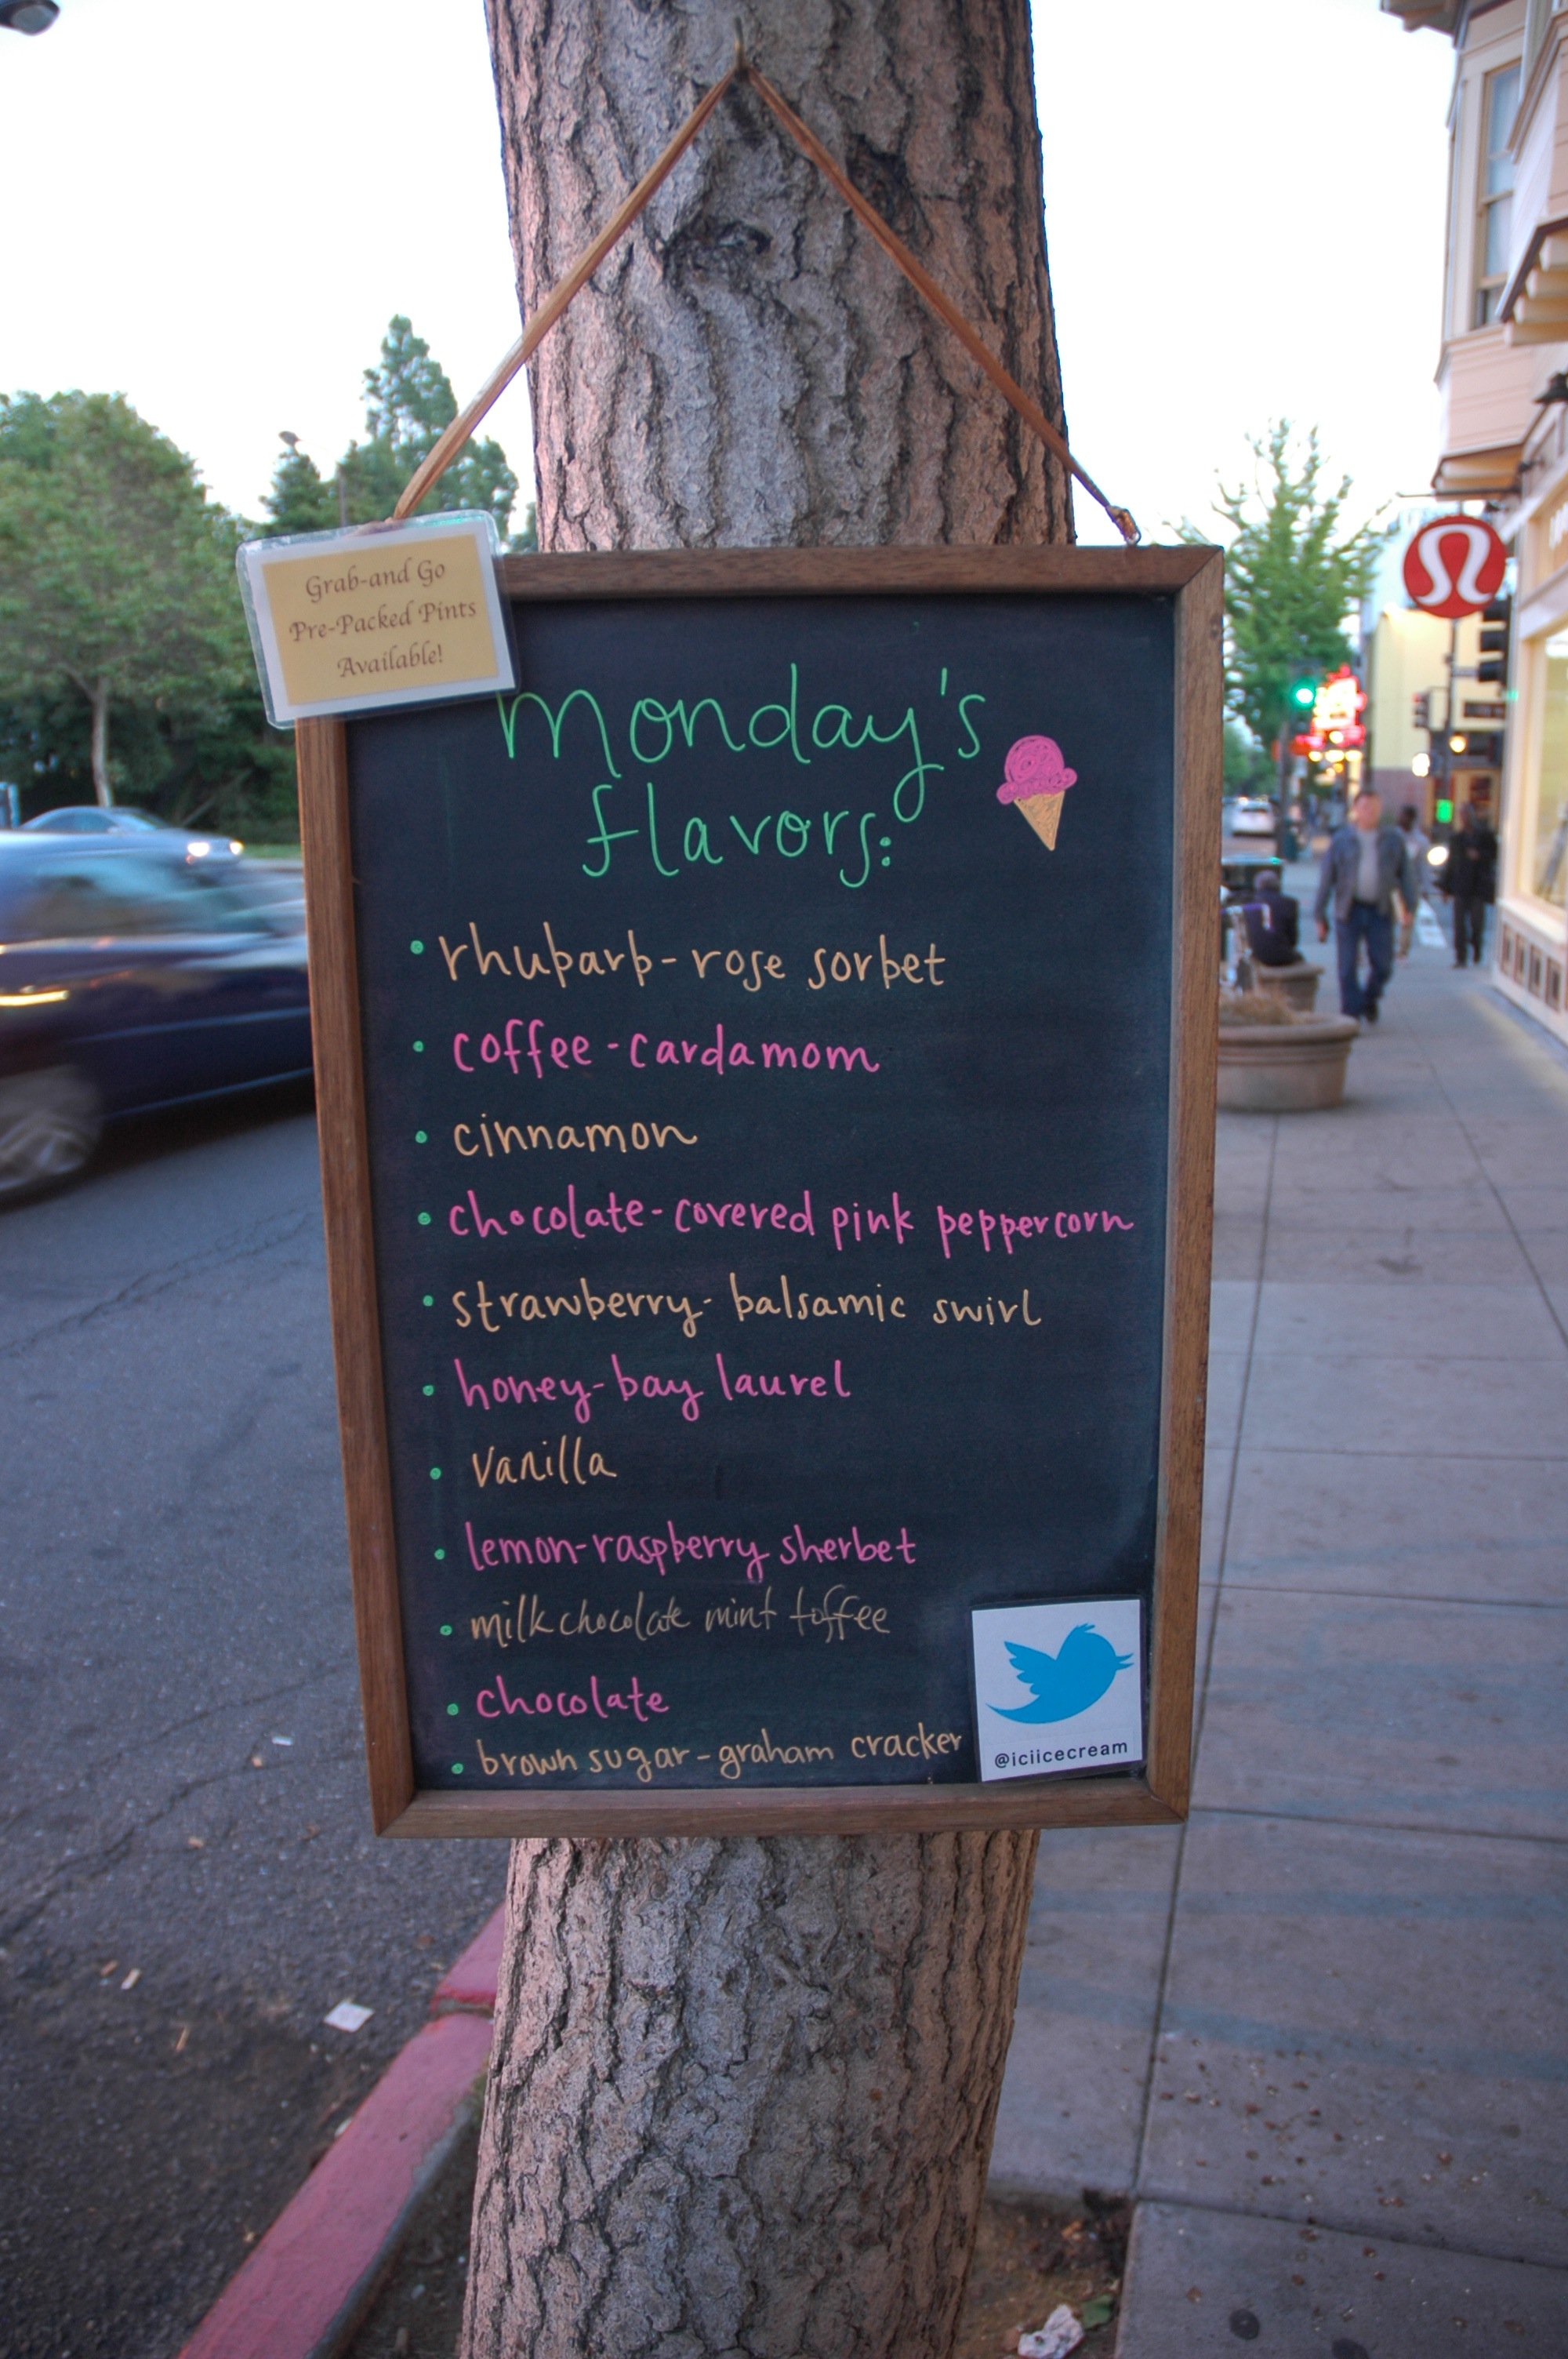 Grab-and Go
Pre-Packed Pints
Available!
Monday's
flavors:
• rhubarb-rose sorbet
• coffee-cardamom
• cinnamon
• chocolate-covered pink peppercorn
• strawberry-balsamic swirl
• honey-bay laurel
• vanilla
• lemon-raspberry sherbet
• milk chocolate mint toffee
• chocolate
• brown sugar-graham cracker
@iciicecream